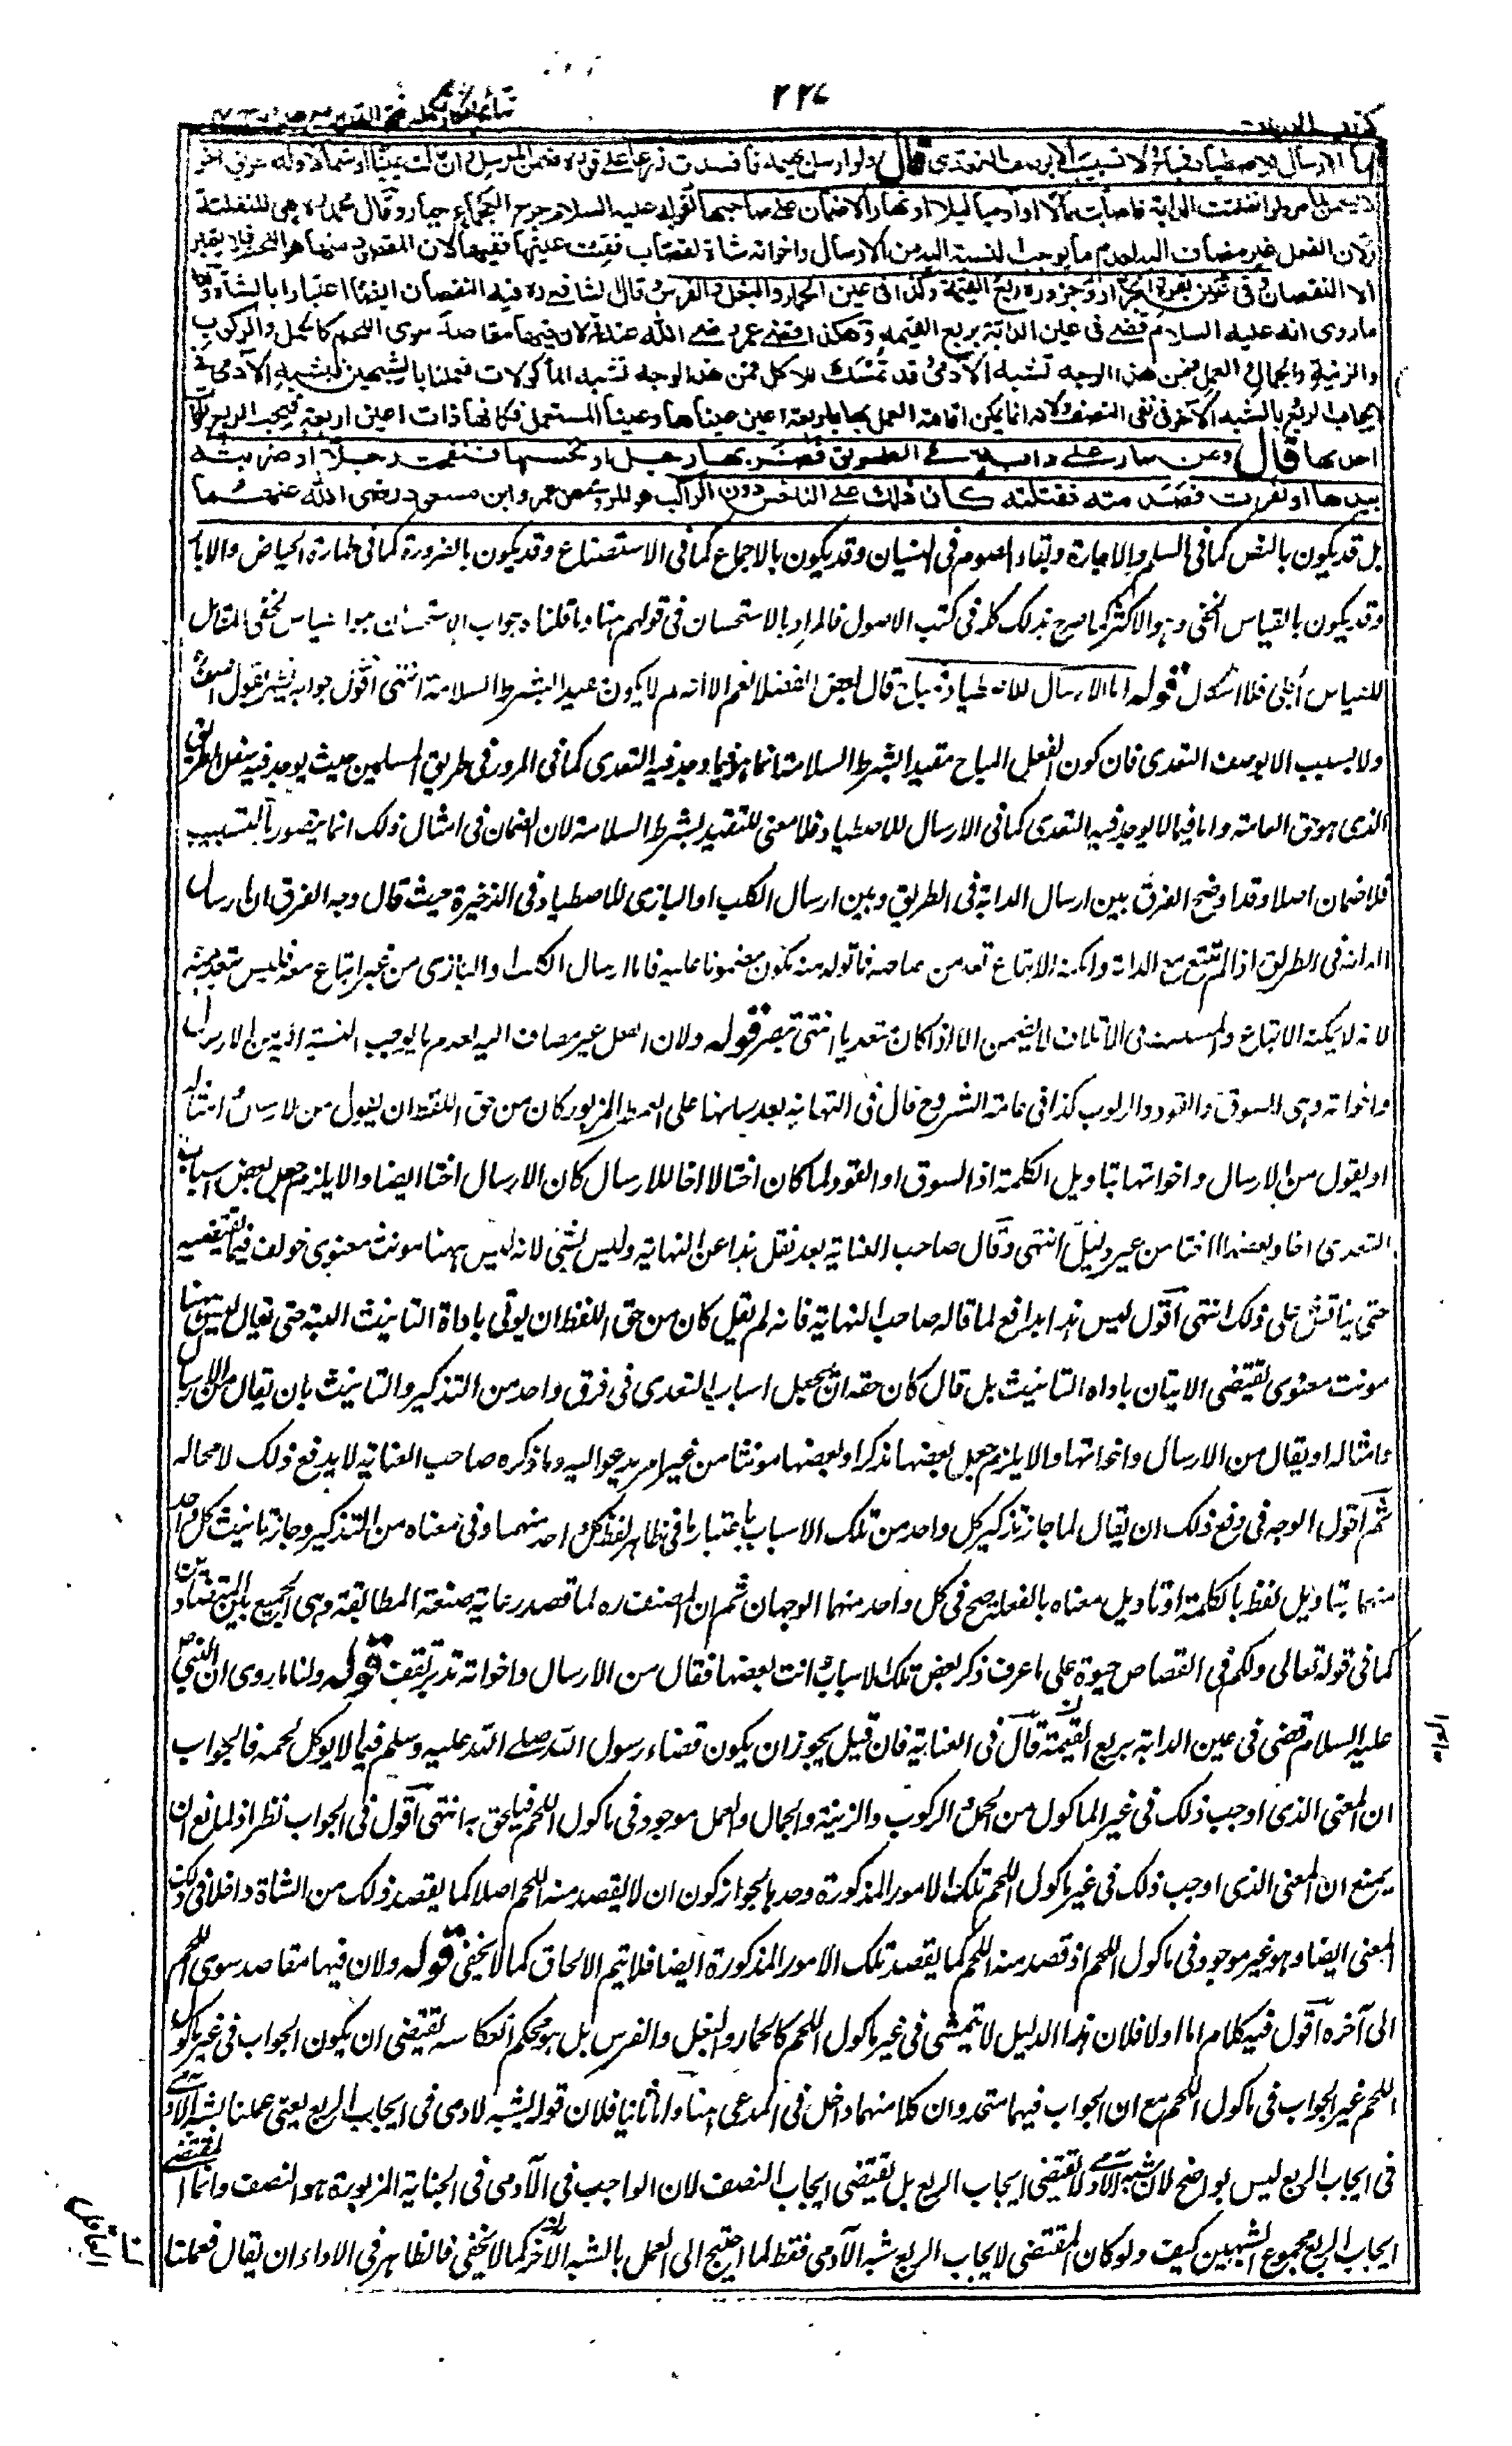 ٢٢٧
اما الارسال للاصطياد فمباح ولا تسبيب الا بوصف التعدى قال ولو ارسل بهيمة فافسدت زرعا على فوره ضمن المرسل وان مالت يمينا او شمالا وله طريق آخر
لا يضمن لما مر ولو انفلتت الدابة فاصابت مالا او آدميا ليلا او نهارا لا ضمان على صاحبها لقوله عليه السلام جرح العجماء جبار وقال محمد ره هى المنفلتة
ولان الفعل غير مضاف اليه لعدم ما يوجب النسبة اليه من الارسال واخواته شاة لقصاب فقئت عينها ففيها لان المقصود منها هو اللحم فلا يعتبر
الا النقصان وفى عين بقرة الجزار وجزوره ربع القيمة وكذا فى عين الحمار والبغل والفرس وقال الشافعى ره فيه النقصان ايضا اعتبارا بالشاة ولنا
ما روى انه عليه السلام قضى فى عين الدابة بربع القيمة وهكذا قضى عمر رضى الله عنه ولان فيها مقاصد سوى اللحم كالحمل والركوب
والزينة والجمال والعمل فمن هذا الوجه تشبه الآدمى وقد تمسك للاكل فمن هذا الوجه تشبه المأكولات فعملنا بالشبهين فبشبه الآدمى فى
ايجاب الربع وبالشبه الآخر فى نفى النصف ولانه انما يمكن اقامة العمل بها باربعة اعين عيناها وعينا المستعمل فكانها ذات اعين اربعة فيجب الربع بفوات
احدها قال ومن سار على دابة فى الطريق فضربها رجل او نخسها فنفحت رجلا او ضربته
بيدها او نفرت فصدمته فقتلته كان ذلك على الناخس دون الراكب هو المروى عن عمر وابن مسعود رضى الله عنهما
بل قد يكون بالنص كما فى السلم والاجارة وبقاء الصوم فى النسيان وقد يكون بالاجماع كما فى الاستصناع وقد يكون بالضرورة كما فى طهارة الحياض والابار
وقد يكون بالقياس الخفى وهو الاكثر كما صرح بذلك كله فى كتب الاصول فالمراد بالاستحسان فى قولهم هنا وما قلنا جواب الاستحسان هو القياس الخفى المقابل
للقياس الجلى فلا اشكال قوله اما الارسال للاصطياد فمباح قال بعض الفضلاء نعم الا انه لم لا يكون مقيدا بشرط السلامة انتهى اقول جوابه يشير اليه قول المصنف
ولا تسبيب الا بوصف التعدى فان كون الفعل المباح مقيدا بشرط السلامة انما هو فيما وجد فيه التعدى كما فى المرور فى طريق المسلمين حيث يوجد فيه شغل الطريق
الذى هو حق العامة واما فيما لا يوجد فيه التعدى كما فى الارسال للاصطياد فلا معنى للتقييد بشرط السلامة لان الضمان فى امثال ذلك انما يتصور بالتسبيب
فلا ضمان اصلا وقد اوضح الفرق بين ارسال الدابة فى الطريق وبين ارسال الكلب او البازى للاصطياد فى الذخيرة حيث قال وجه الفرق ان ارسال
الدابة فى الطريق اذا لم يتبع مع الدابة وامكنه الاتباع تعد من صاحبه فما تولد منه يكون مضمونا عليه فاما ارسال الكلب والبازى من غير اتباع معه فليس بتعد منه
لانه لا يمكنه الاتباع والمسبب فى الاتلاف لا يضمن الا اذا كان متعديا انتهى تبصر قوله ولان الفعل غير مضاف اليه لعدم ما يوجب النسبة اليه من الارسال
واخواته وهى السوق والقود والركوب كذا فى عامة الشروح قال فى النهاية بعد بيانها على النمط المزبور كان من حق اللفظ ان يقول من الارسال وامثاله
او يقول من الارسال واخواتها بتاويل الكلمة اذ السوق او القود لما كان اختا لا اخا للارسال كان الارسال اختا ايضا والا يلزم جعل بعض اسباب
التعدى اخا وبعضها اختا من غير دليل انتهى وقال صاحب العناية بعد نقل هذا عن النهاية وليس بشئ لانه ليس ههنا مونث معنوى خولف فيما يقتضيه
حتى يناقش على ذلك انتهى اقول ليس هذا بدافع لما قاله صاحب النهاية فانه لم يقل كان من حق اللفظ ان يوتى باداة التانيث البتة حتى يقال ليس ههنا
مونث معنوى يقتضى الاتيان باداة التانيث بل قال كان حقه ان يجعل اسباب التعدى فى فرق واحد من التذكير والتانيث بان يقال من الارسال
وامثاله او يقال من الارسال واخواتها والا يلزم جعل بعضها مذكرا وبعضها مونثا من غير امر يدعو اليه وما ذكره صاحب العناية لا يدفع ذلك لا محالة
ثم اقول الوجه فى دفع ذلك ان يقال لما جاز تذكير كل واحد من تلك الاسباب باعتبار ما فى ظاهر لفظ كل واحد منهما وفى معناه من التذكير وجاز تانيث كل واحد
منهما بتاويل لفظه بالكلمة او تاويل معناه بالفعلة صح فى كل واحد منهما الوجهان ثم ان المصنف ره لما قصد رعاية صنعة المطابقة وهى الجمع بين المتضادين
كما فى قوله تعالى ولكم فى القصاص حيوة على ما عرف ذكر بعض تلك الاسباب وانث بعضها فقال من الارسال واخواته تدبر تقف قوله ولنا ما روى ان النبى
عليه السلام قضى فى عين الدابة بربع القيمة قال فى العناية فان قيل يجوز ان يكون قضاء رسول الله صلى الله عليه وسلم فيما لا يوكل لحمه فالجواب
ان المعنى الذى اوجب ذلك فى غير الماكول من الحمل والركوب والزينة والجمال والعمل موجود فى ماكول اللحم فيلحق به انتهى اقول فى الجواب نظر اذ لمانع ان
يمنع ان المعنى الذى اوجب ذلك فى غير ماكول اللحم تلك الامور المذكورة وحدها لجواز كون ان لا يقصد منه اللحم اصلا كما يقصد ذلك من الشاة داخلا فى ذلك
المعنى ايضا وهو غير موجود فى ماكول اللحم اذ قصد منه اللحم كما يقصد تلك الامور المذكورة ايضا فلا يتم الالحاق كما لا يخفى قوله ولان فيها مقاصد سوى اللحم
الى آخره اقول فيه كلام اما اولا فلان هذا الدليل لا يتمشى فى غير ماكول اللحم كالحمار والبغل والفرس بل هو بحكم انعكاسه يقتضى ان يكون الجواب فى غير ماكول
اللحم غير الجواب فى ماكول اللحم مع ان الجواب فيهما متحد وان كلا منهما داخل فى المدعى هنا واما ثانيا فلان قوله بشبه الادمى فى ايجاب الربع يعنى عملنا بشبه الآدمى
فى ايجاب الربع ليس بواضح لان شبه الآدمى لا يقتضى ايجاب الربع بل يقتضى ايجاب النصف لان الواجب فى الآدمى فى الجناية المزبورة هو النصف وانما المقتضى
ايجاب الربع مجموع الشبهين كيف ولو كان المقتضى لايجاب الربع شبه الآدمى فقط لما احتيج الى العمل بالشبه الآخر كما لا يخفى فالظاهر فى الاداء ان يقال فعملنا